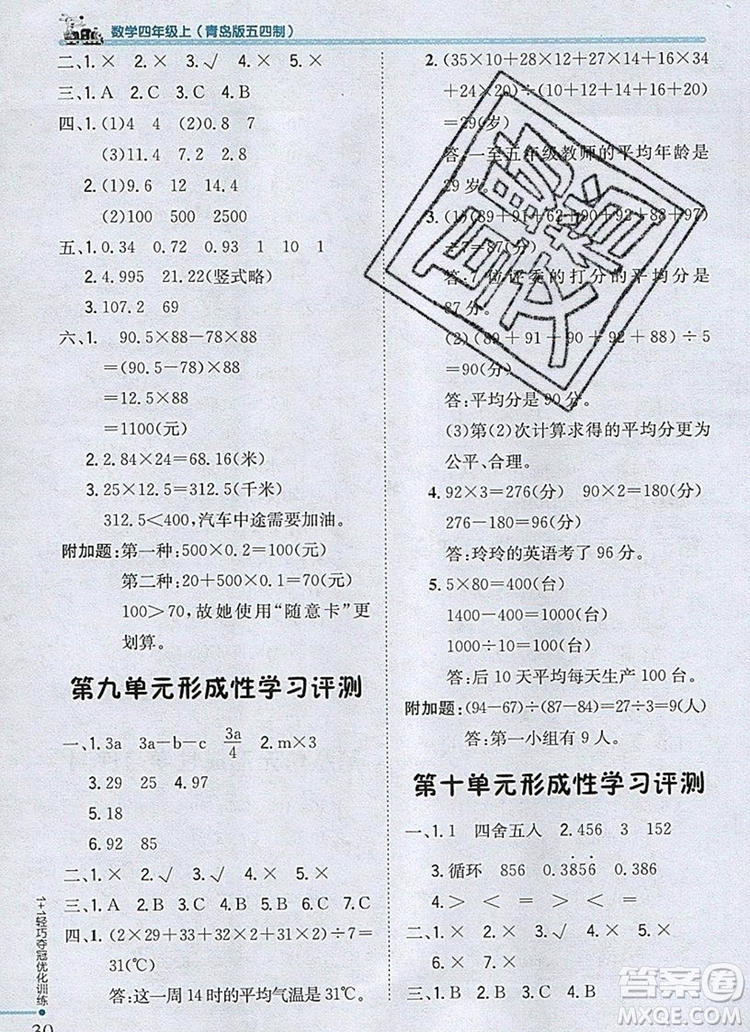 数学四年级上（青岛版五四制）
二、1.× 2.× 3.√ 4.× 5.×
三、1.A 2.C 3.C 4.B
四、1.(1)4 (2)7 7 0.49
(3)11.2 7.2 2.8
2.(1)9.6 12 14.4
(2)100 500 2500
五、1.0.34 0.72 0.93 1 0
2.4.995 21.22(竖式略)
3.107.2 69
六、1. 90.5×88−78×88
=(90.5−78)×88
=12.5×88
=1100(元)
2.2.84×24=68.16(米)
3.25×12.5=312.5(千米)
312.5<400,汽车中途需要加油。
附加题:第一种:500×0.2=100(元)
第二种:20+500×0.1=70(元)
100>70,故她使用“随意卡”更
划算。
第九单元形成性学习评测
一、1.3a 3a−b−c 3a/4 2.m×3
3.29 4.95
5.18
6.92 85
二、1.× 2.√ 3.√ 4.× 5.×
三、1.A B 2.B 3.A 4.C 5.C
四、1.(2×29+33+32×2+31×2)÷7=
31(℃)
答:这一周14时的平均气温是31℃。
1+1轻巧夺冠优化训练
30
2.(35×10+25×12+32×14+34×16
+24×20)÷(10+12+14+16+20)
=29(岁)
答:一至五年级教师的平均年龄是
29岁。
3.(1)(89+91+62+90+92+88+97)
÷7=87(分)
答:7位评委的打分的平均分是
87分。
(2)(89+91+90+92+88)÷5
=90(分)
答:平均分是90分。
(3)第(2)次计算求得的平均分更为
公平、合理。
4.92×3=276(分) 90×2=180(分)
276−180=96(分)
答:玲玲的英语考了96分。
5.5×80=400(台)
1400−400=1000(台)
1000÷10=100(台)
答:后10天平均每天生产100台。
附加题:(94−67)÷(87−84)=9(人)
答:第一小组有9人。
第十单元形成性学习评测
一、1.1 四舍五入 2.456 3 152
3.循环 856 0.3856 0.386
4.> < = < = >
二、1.× 2.× 3.× 4.√
三、1.C 2.B 3.A 4.A 5.C
答案圈
MXQE.COM